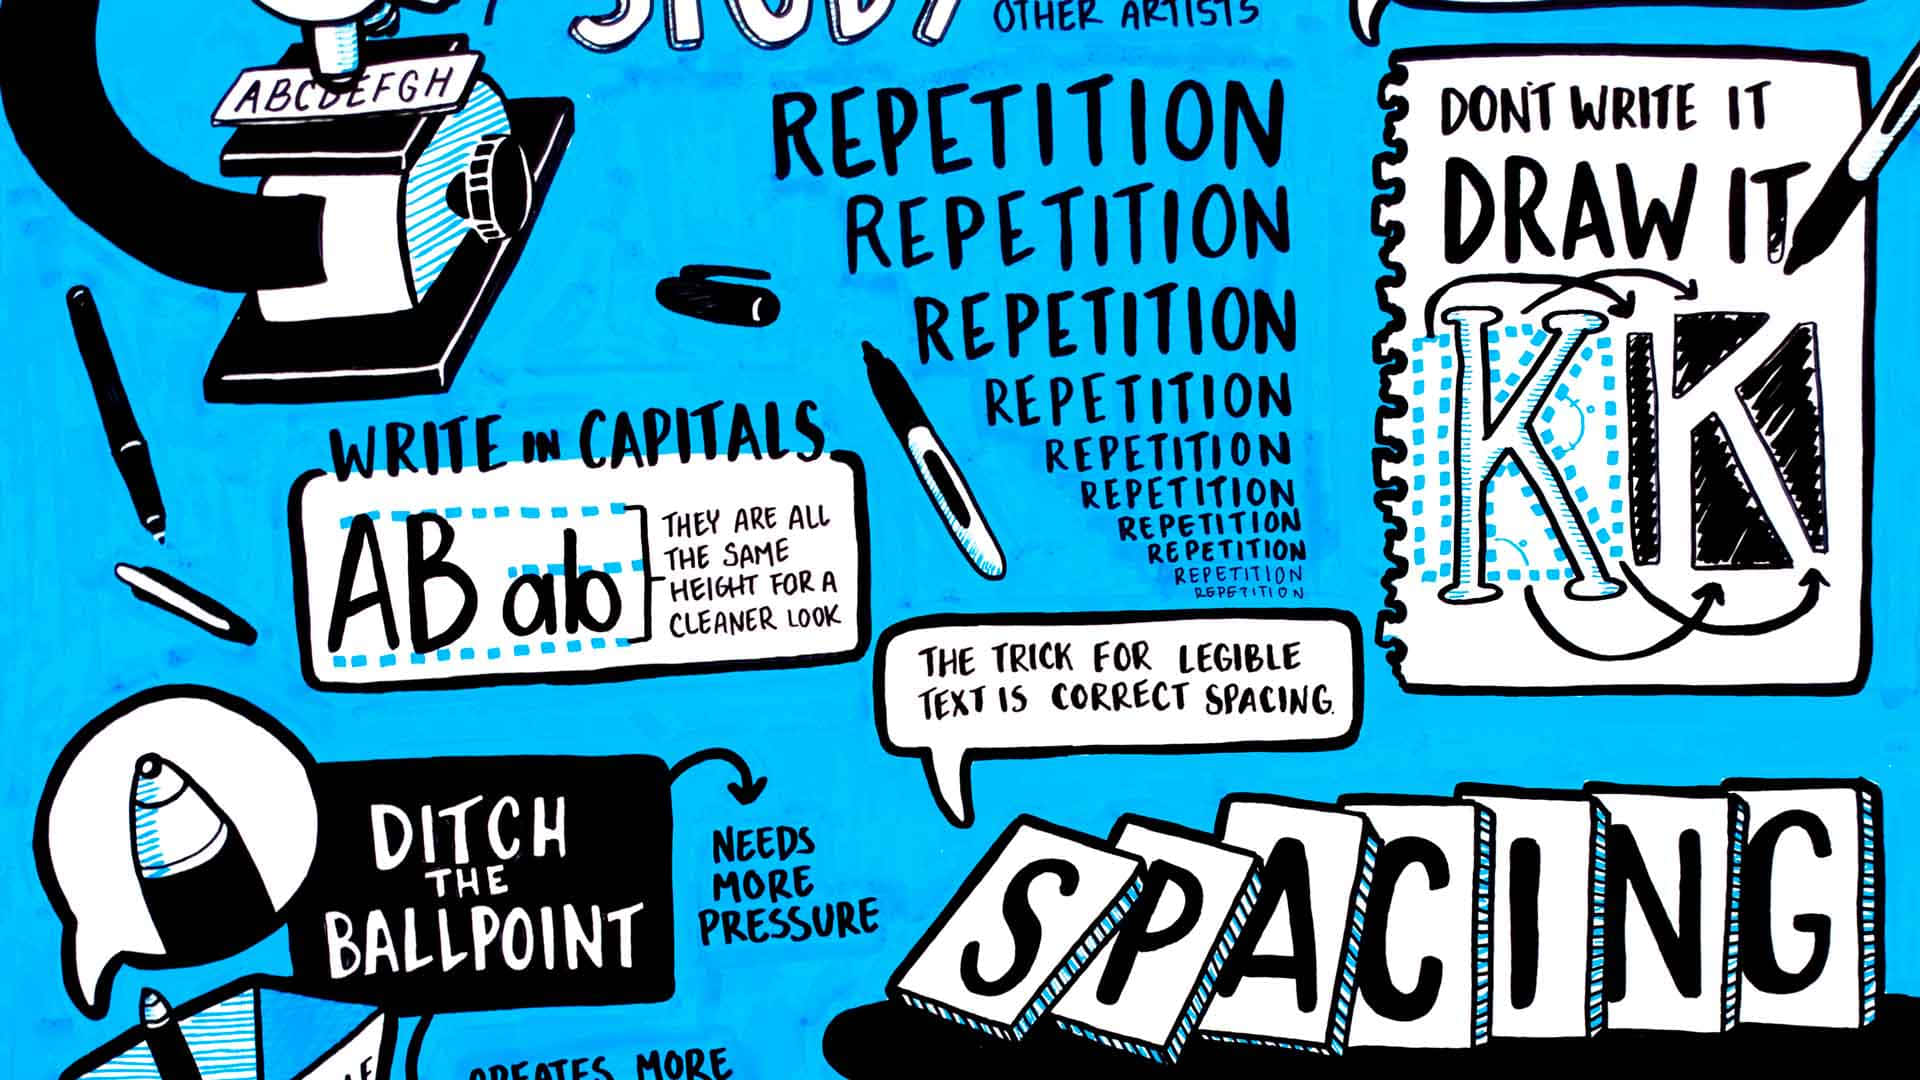 STUDY
OTHER ARTISTS
ABCDEFGH
REPETITION
REPETITION
REPETITION
REPETITION
REPETITION
REPETITION
REPETITION
REPETITION
REPETITION
REPETITION
DON'T WRITE IT
DRAW IT
K K
WRITE IN CAPITALS
AB ab
THEY ARE ALL
THE SAME
HEIGHT FOR A
CLEANER LOOK
THE TRICK FOR LEGIBLE
TEXT IS CORRECT SPACING.
SPACING
DITCH
THE
BALLPOINT
NEEDS
MORE
PRESSURE
CREATES MORE